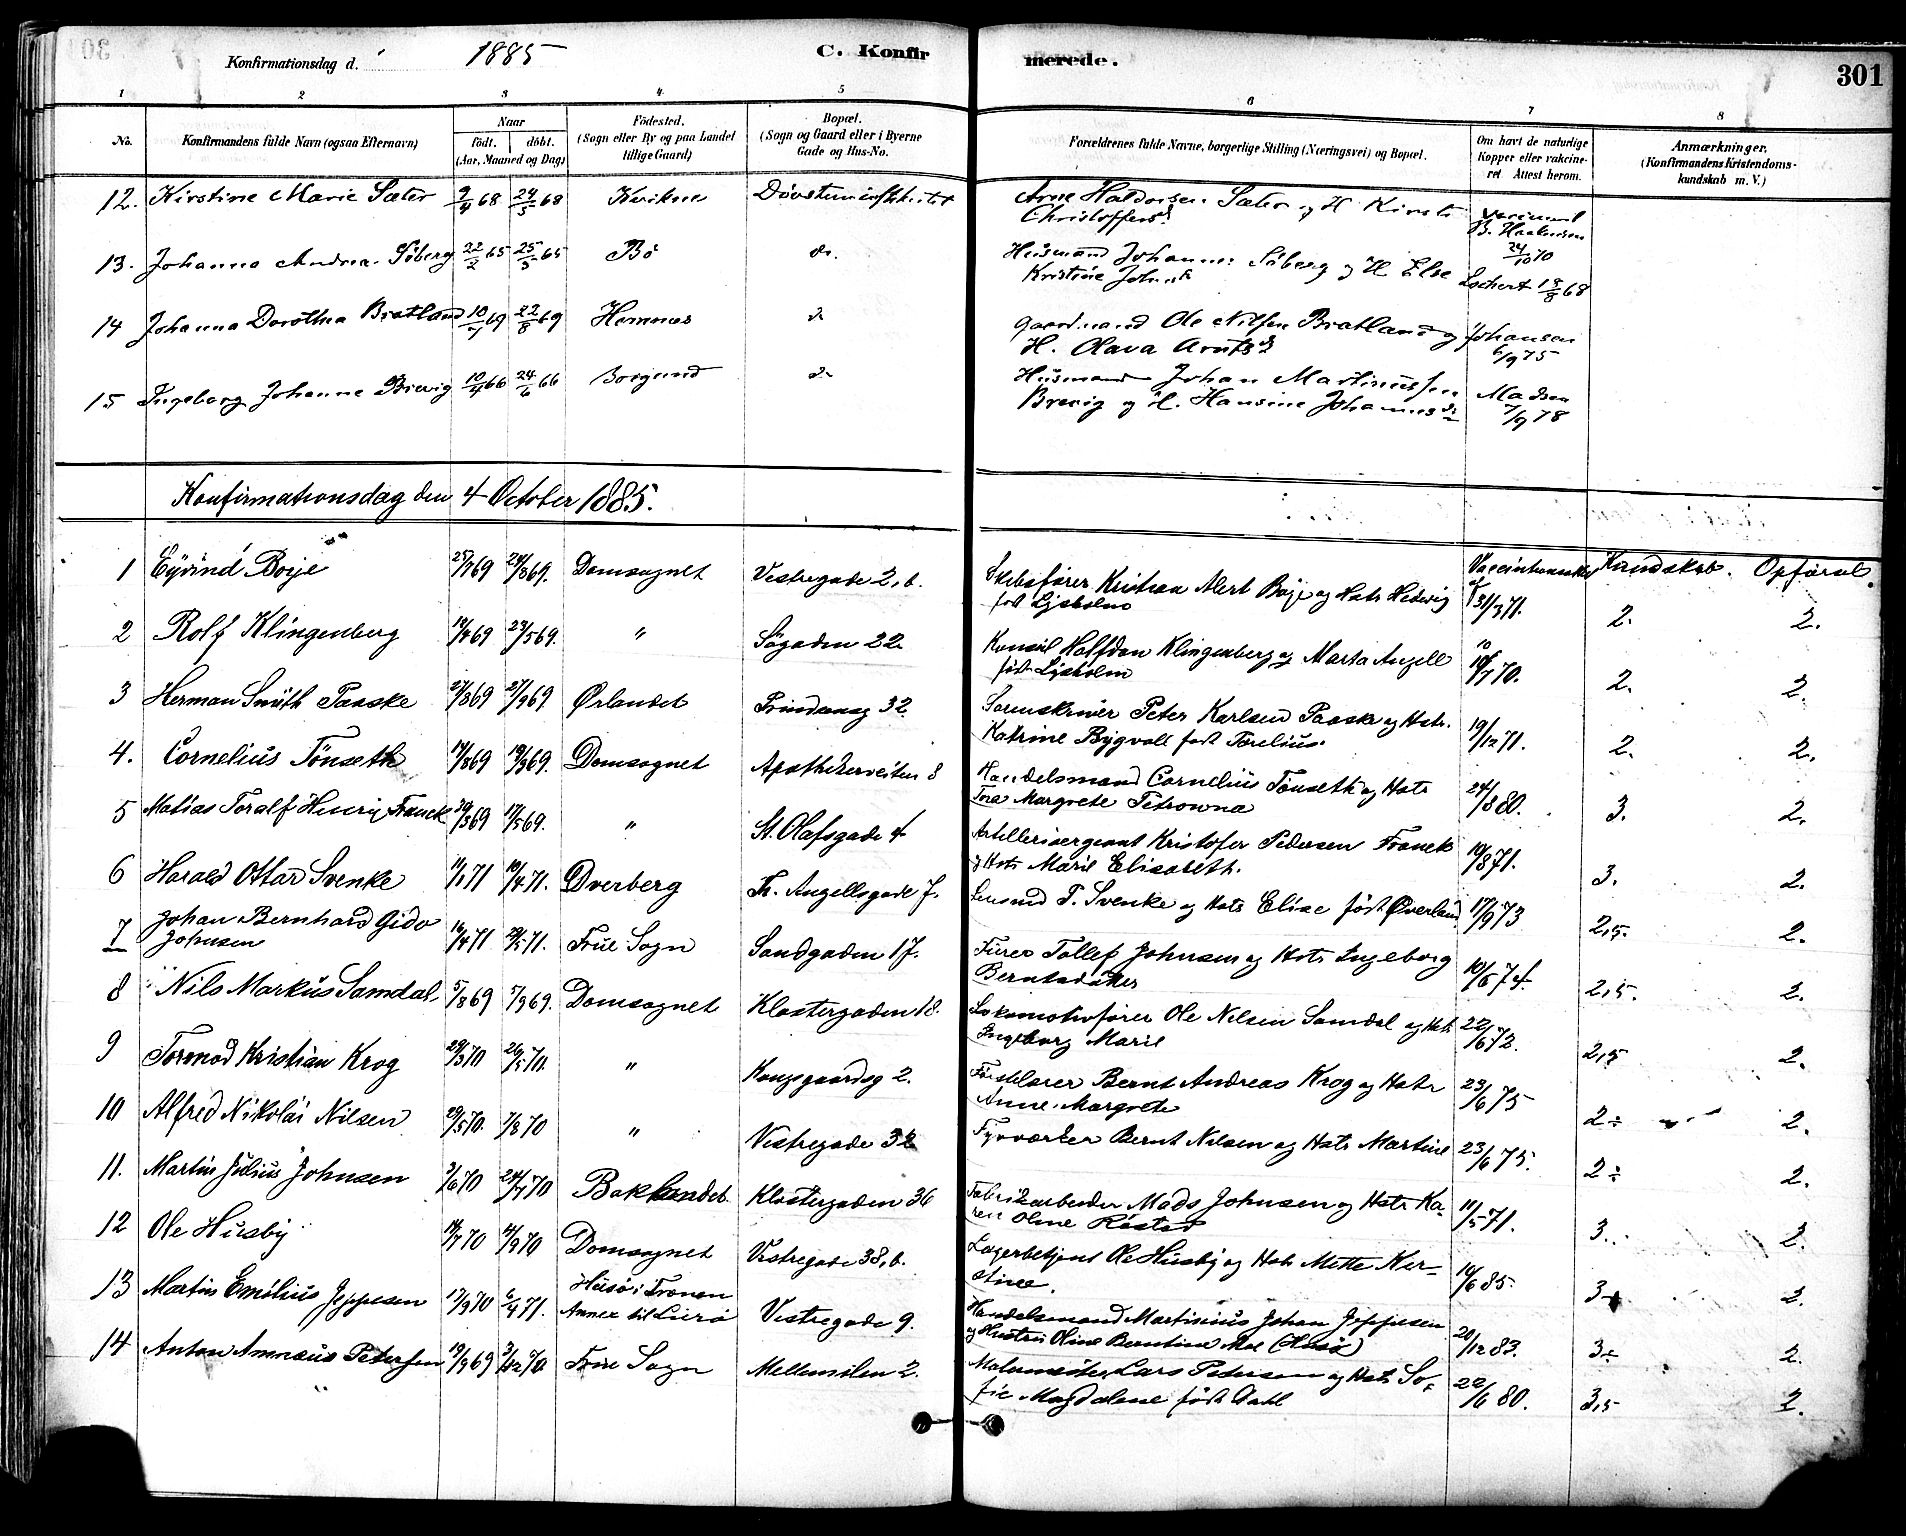 Konfirmationsdag d. 1885 C. Konfirmerede. 301
1 2 3 4 5 6 7 8
No. Konfirmandens fulde Navn (ogsaa Efternavn) Naar født. døbt. (Aar, Maaned og Dag) Fødested. (Sogn eller By og paa Landet tillige Gaard) Bopæl. (Sogn og Gaard eller i Byerne Gade og Hus-No. Forældrenes fulde Navne, borgerlige Stilling (Næringsvei) og Bopæl. Om havt de naturlige Kopper eller vakcineret. Attest herom. Anmærkninger. (Konfirmandens Kristendomskundskab m. V.)
12. Kirstine Marie Sæter 9/4 68 24/5 68 Kvikne Arne Haldorsen Sæter og H. Kirsti
Christoffersd. B. Haakensen 24/10 70
13. Johanna Andrea Söberg 22/2 65 25/5 65 Bö do. Husmand Johannes Söberg og H. Else
Kristine Johnsd. 18/8 68
14 Johanna Dorothea Bratland 10/7 69 22/8 69 Hemnes do Gaardmand Ole Nilsen Bratland og
H. Olava Arntsd. Johansen 6/9 75
15 Ingeborg Johanne Brevig 10/4 66 24/6 66 Borgund do Husmand Johan Martinussen
Brevig og H. Hansine Johannesd. Madsen 7/9 78
Konfirmationsdag den 4 October 1885.
Kundskab. Opførsel.
1 Eyvind Boye 25/7 69 29/8 69. Domsognet Vestregade 2, b. Skibsfører Kristian Alert Boye og Hstr Hedevig
født Lysholm 31/3 71. 2. 2.
2 Rolf Klingenberg 14/4 69 23/5 69. " Søgaden 22. Konsul Halfdan Klingenberg og Marta Angell
født Lysholm 70. 2. 2.
3 Herman Smith Paaske 27/8 69 27/9 69 Ørlandet Prindsensg 32. Sorenskriver Peter Karlsen Paaske og Hstr.
Katrine Bygvall født Torelius. 19/12 71. 2. 2.
4. Cornelius Tönseth 14/8 69 19/9 69. Domsognet Apothekerveiten 8 Handelsmand Cornelius Tönseth og Hstr
Tora Margrete Petrowna 24/8 80. 3. 2.
5 Matias Toralf Henrix Franck 30/3 69 17/5 69. " St. Olafsgade 4 Artillerisergeant Kristofer Pedersen Franck
og Hstr Marie Elisabeth. 19/8 71. 3. 2.
6 Harald Ottar Svenke 11/1 71 10/4 71. Dverberg Th. Angellsgade 7. Lensmd T. Svenke og Hstr Elise født Øverland 17/9 73 2,5. 2.
7 Johan Bernhard Gido
Johnsen 16/4 71 71. Frue Sogn Sandgaden 17. Furer Tollef Johnsen og Hstr Ingeborg
Berntsdatter 10/6 74. 2,5. 2.
8 Nils Markus Samdal 5/8 69 5/9 69. Domsognet Klostergaden 18. Lokomotivfører Ole Nilsen Samdal og Hstr
Ingeborg Marie 22/6 72. 2,5 2.
9 Tormod Kristian Krog 29/3 70 26/5 70. " Kongsgaardsg 2. Bernt Andreas Krog og Hstr
Anne Margrete 23/6 75 2÷ 2.
10 Alfred Nikolai Nilsen 29/5 70. 7/8 70 " Vestregade 32 Fyrværker Bernt Nilsen og Hstr Martine 23/6 75. 2÷ 2.
11. Martin Julius Johnsen 3/6 70 24/7 70 Baklandet Klostergaden 36 Fabrikarbeider Mads Johnsen og Hstr Karen
Oline Røstad 11/5 71. 3. 2.
12 Ole Husby 14/7 70 11/9 70 Domsognet Vestregade 38, b. Lagerbetjent Ole Husby og Hstr Mette Kerstine. 16/6 85. 3 2.
13 Martin Emilius Jeppesen 17/9 70 6/4 71. Husö i Trænen
Annex til Lurø Vestregade 9. Handelsmand Martinius Johan Jeppesen
og Hustru Oline Berntine Moe (Husö) 20/12 83. 3÷ 2.
14 Anton Amneus Petersen 19/9 69 3/12 70 Frue Sogn Mellemilen 2. Malermester Lars Petersen og Hstr Sofie
Magdalene født Dahl 22/6 80. 3,5 2.